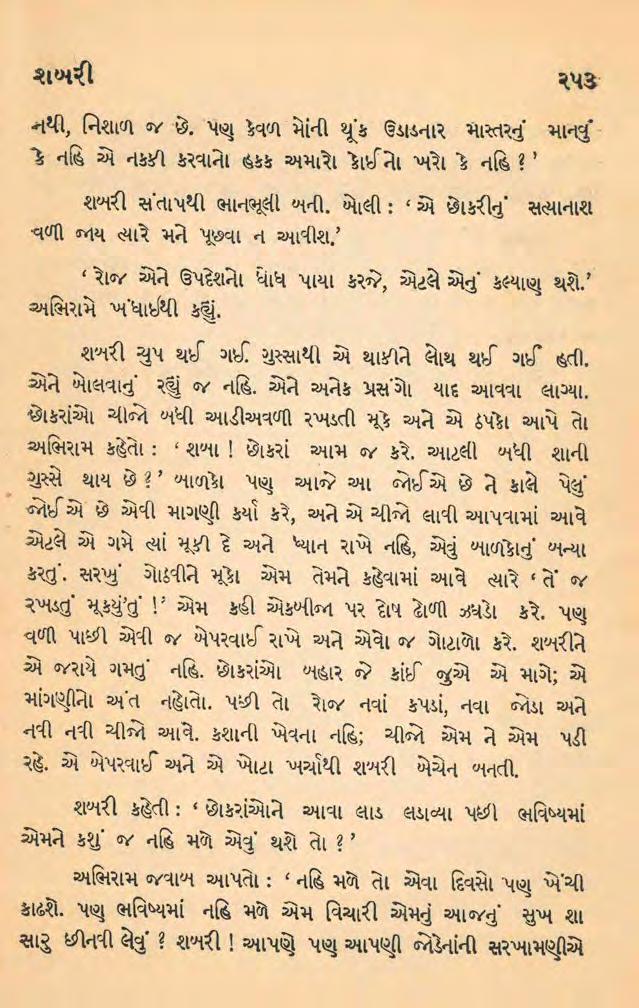 શબરી
૨૫૩
નથી, નિશાળ જ છે. પણ કેવળ મોંની થૂંક ઉડાડનાર માસ્તરનું માનવું
કે નહિ એ નક્કી કરવાનો હક્ક અમારો કોઈનો ખરો કે નહિ ? ’
શબરી સંતાપથી ભાનભૂલી બની. બોલી : ‘ એ છોકરીનું સત્યાનાશ
વળી જાય ત્યારે મને પૂછવા ન આવીશ.’
‘ રોજ એને ઉપદેશનો ધોધ પાયા કરજે, એટલે એનું કલ્યાણ થશે.’
અભિરામે ખંધાઈથી કહ્યું.
શબરી ચુપ થઈ ગઈ. ગુસ્સાથી એ થાકીને લોથ થઈ ગઈ હતી.
એને બોલવાનું રહ્યું જ નહિ. એને અનેક પ્રસંગો યાદ આવવા લાગ્યા.
છોકરાંઓ ચીજો બધી આડીઅવળી રખડતી મૂકે અને એ ઠપકો આપે તો
અભિરામ કહેતો : ‘ શબા ! છોકરાં આમ જ કરે. આટલી બધી શાની
ગુસ્સે થાય છે ? ’ બાળકો પણ આજે આ જોઈએ છે ને કાલે પેલું
જોઈએ છે એવી માગણી કર્યા કરે, અને એ ચીજો લાવી આપવામાં આવે
એટલે એ ગમે ત્યાં મૂકી દે અને ધ્યાન રાખે નહિ, એવું બાળકોનું બન્યા
કરતું. સરખું ગોઠવીને મૂકો એમ તેમને કહેવામાં આવે ત્યારે ‘ તેં જ
રખડતું મૂક્યું’તું !’ એમ કહી એકબીજા પર દોષ ઢોળી ઝઘડો કરે. પણ
વળી પાછી એવી જ બેપરવાઈ રાખે અને એવો જ ગોટાળો કરે. શબરીને
એ જરાયે ગમતું નહિ. છોકરાંઓ બહાર જે કાંઈ જુએ એ માગે; એ
માંગણીનો અંત નહોતો. પછી તો રોજ નવાં કપડાં, નવા જોડા અને
નવી નવી ચીજો આવે. કશાની ખેવના નહિ; ચીજો એમ ને એમ પડી
રહે. એ બેપરવાઈ અને એ ખોટા ખર્ચાથી શબરી બેચેન બનતી.
શબરી કહેતી : ‘ છોકરાંઓને આવા લાડ લડાવ્યા પછી ભવિષ્યમાં
એમને કશું જ નહિ મળે એવું થશે તો ? ’
અભિરામ જવાબ આપતો : ‘ નહિ મળે તો એવા દિવસો પણ ખેંચી
કાઢશે. પણ ભવિષ્યમાં નહિ મળે એમ વિચારી એમનું આજનું સુખ શા
સારુ છીનવી લેવું ? શબરી ! આપણે પણ આપણી જોડેનાંની સરખામણીએ